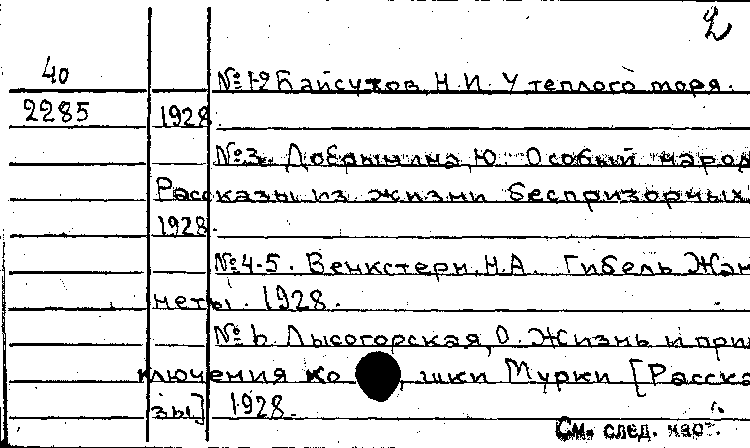 2
40
№1-2 Байсутов, Н.И. У теплого моря.
2285 1928.
№3. Добрынина, Ю. Особый народ
Рассказы из жизни беспризорных.
1928.
№4-5. Венкстерн, Н.А. Гибель Жан
неты. 1928.
№6 Лысогорская, О. Жизнь и при
ключения ко шки Мурки [Расска
зы] 1928.
См. след. кар